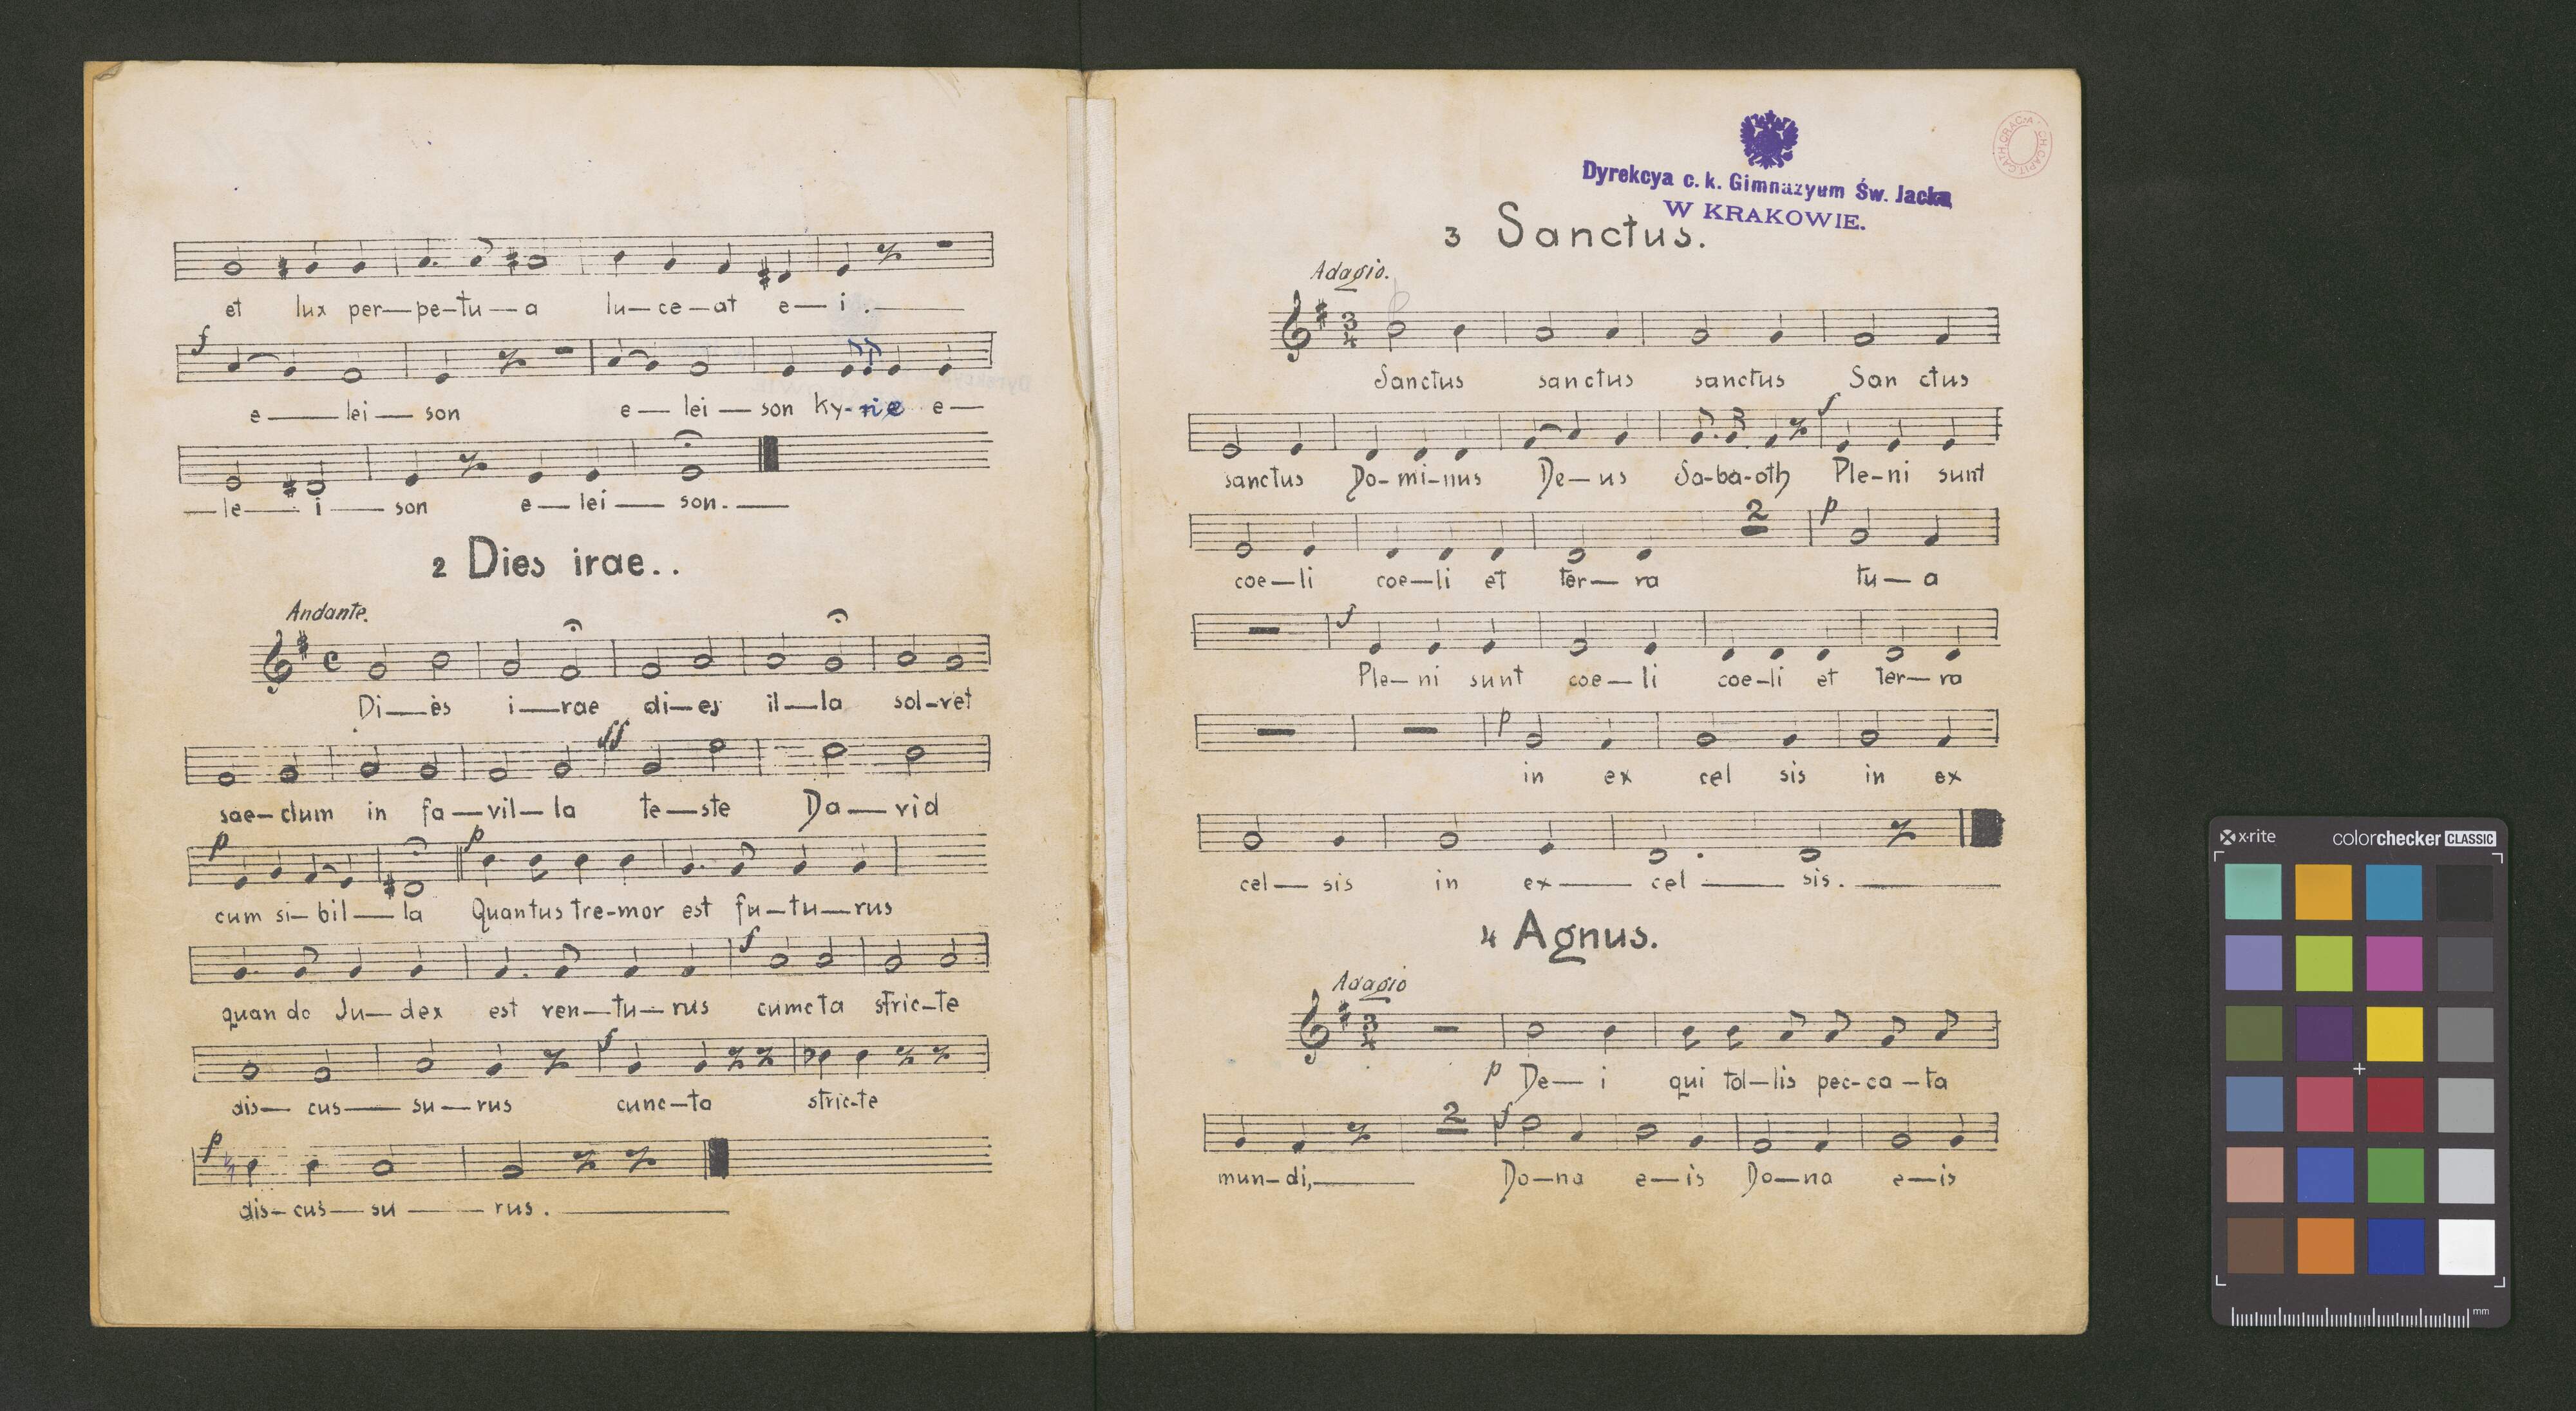 et lux per—pe—tu—a lu—ce—at e—i.
f
e—lei—son e—lei—son ky-rie e—
—le—i—son e—lei—son.—
2 Dies irae..
Andante.
Di—es i—rae di—es il—la sol—vet
ff
sae—clum in fa—vil—la te—ste Da—vid
p p
cum si—bil—la Quantus tre-mor est fu—tu—rus
f
quan do Ju—dex est ven—tu—rus cuncta stric—te
f
dis—cus—su—rus cunc—ta stric-te
p
dis—cus—su—rus.
Dyrekcya c. k. Gimnazyum Św. Jacka
W KRAKOWIE.
3 Sanctus.
Adagio.
3
4
Sanctus sanctus sanctus San ctus
f
sanctus Do-mi-nus De—us Sa-ba-oth Ple-ni sunt
2 p
coe—li coe—li et ter—ra tu—a
f
Ple—ni sunt coe—li coe—li et ter—ra
p
in ex cel sis in ex
cel—sis in ex—cel—sis.
4 Agnus.
Adagio
3
4
p De—i qui tol—lis pec-ca-ta
2 f
mun-di,— Do—na e—is Do—na e—is
x·rite colorchecker CLASSIC
mm